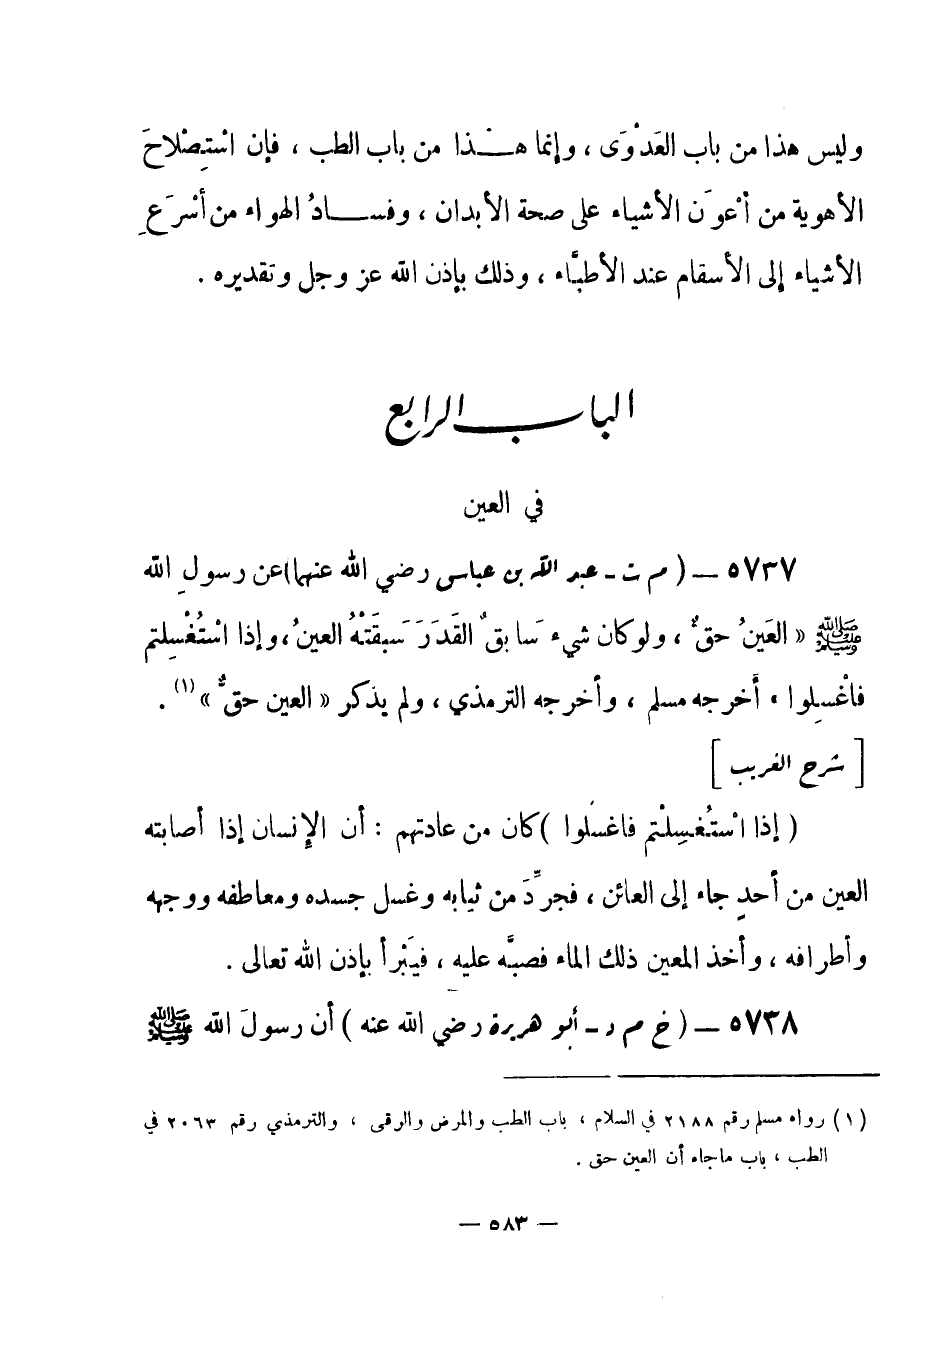 وليس هذا من باب العَدْوَى ، وإنما هـــذا من باب الطب ، فإن اسْتِصْلاحَ
الأهوية من أعْوَن الأشياء على صحة الأبدان ، وفســـادُ الهواء من أسْرَعِ
الأشياء إلى الأسقام عند الأطبَّاء ، وذلك بإذن الله عز وجل وتقديره .
الباب الرابع
في العين
٥٧٣٧ – ( م ت - عبد الله بن عباس رضي الله عنهما ) عن رسولِ الله
ﷺ « العَينُ حقٌّ ، ولو كان شيء سَابقٌ القَدَرَ سَبقَتْهُ العينُ ، وإذا اسْتُغْسِلتم
فاغْسِلوا » أَخرجه مسلم ، وأخرجه الترمذي ، ولم يذكر « العين حقٌّ » (١) .
[ شرح الغريب ]
( إذا اسْتُغسِلْتم فاغسلوا ) كان من عادتهم : أن الإنسان إذا أصابته
العين من أحدٍ جاء إلى العائن ، فجرِّدَ من ثيابه وغسل جسده ومعاطفه ووجهه
وأطرافه ، وأخذ المعين ذلك الماء فصبَّه عليه ، فيَبْرأ بإذن الله تعالى .
٥٧٣٨ – ( خ م د - أبو هريرة رضي الله عنه ) أن رسولَ الله ﷺ
(١) رواه مسلم رقم ٢١٨٨ في السلام ، باب الطب والمرض والرقى ، والترمذي رقم ٢٠٦٣ في
الطب ، باب ماجاء أن العين حق .
– ٥٨٣ –